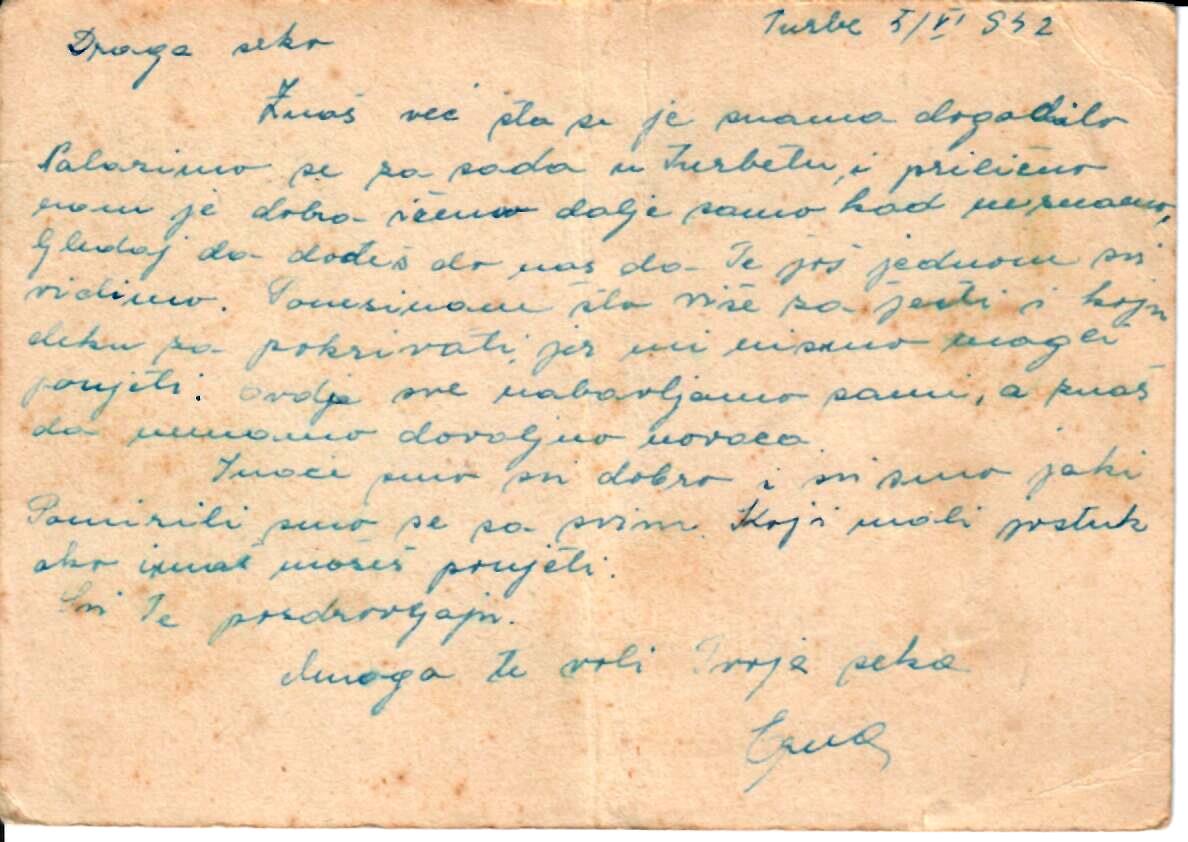 Turbe 5/VI 942
Draga seko
Znaš već šta se je snama dogodilo
Nalazimo se za sada u Turbetu, i prilično
nam je dobro ićemo dalje samo kad neznamo,
Gledaj da dođeš do nas da Te još jednom svi
vidimo. Ponesi nam što više za jesti i koju
deku za pokrivati, jer mi nismo mogli
ponjeti. ovdje sve nabavljamo sami, a znaš
da nemamo dovoljno novaca
Inače smo svi dobro i svi smo jaki
Pomirili smo se sa svim. Koji mali
ako imaš možeš ponjeti.
Svi Te pozdravljaju.
Mnogo te voli Tvoja seka
Erna